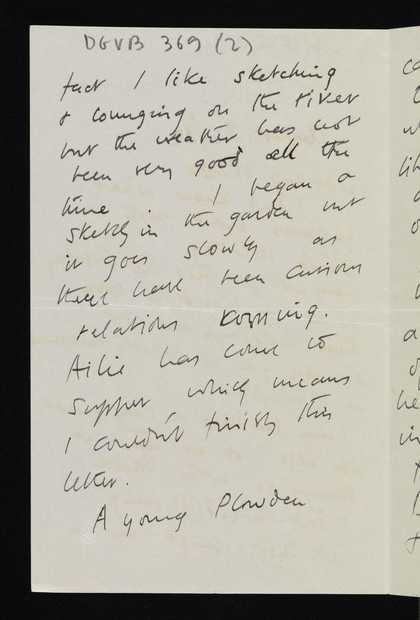 DGVB 369 (2)
fact I like sketching
& lounging on the river
but the weather has not
been very good all the
time. I began a
sketch in the garden but
it goes slowly as
there have been cautious
relations
Ailie has come to
supper, which means
I couldn't finish this
letter.
A young Plowden